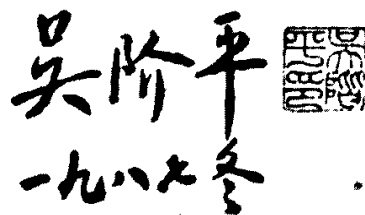 吴阶平
一九八七冬